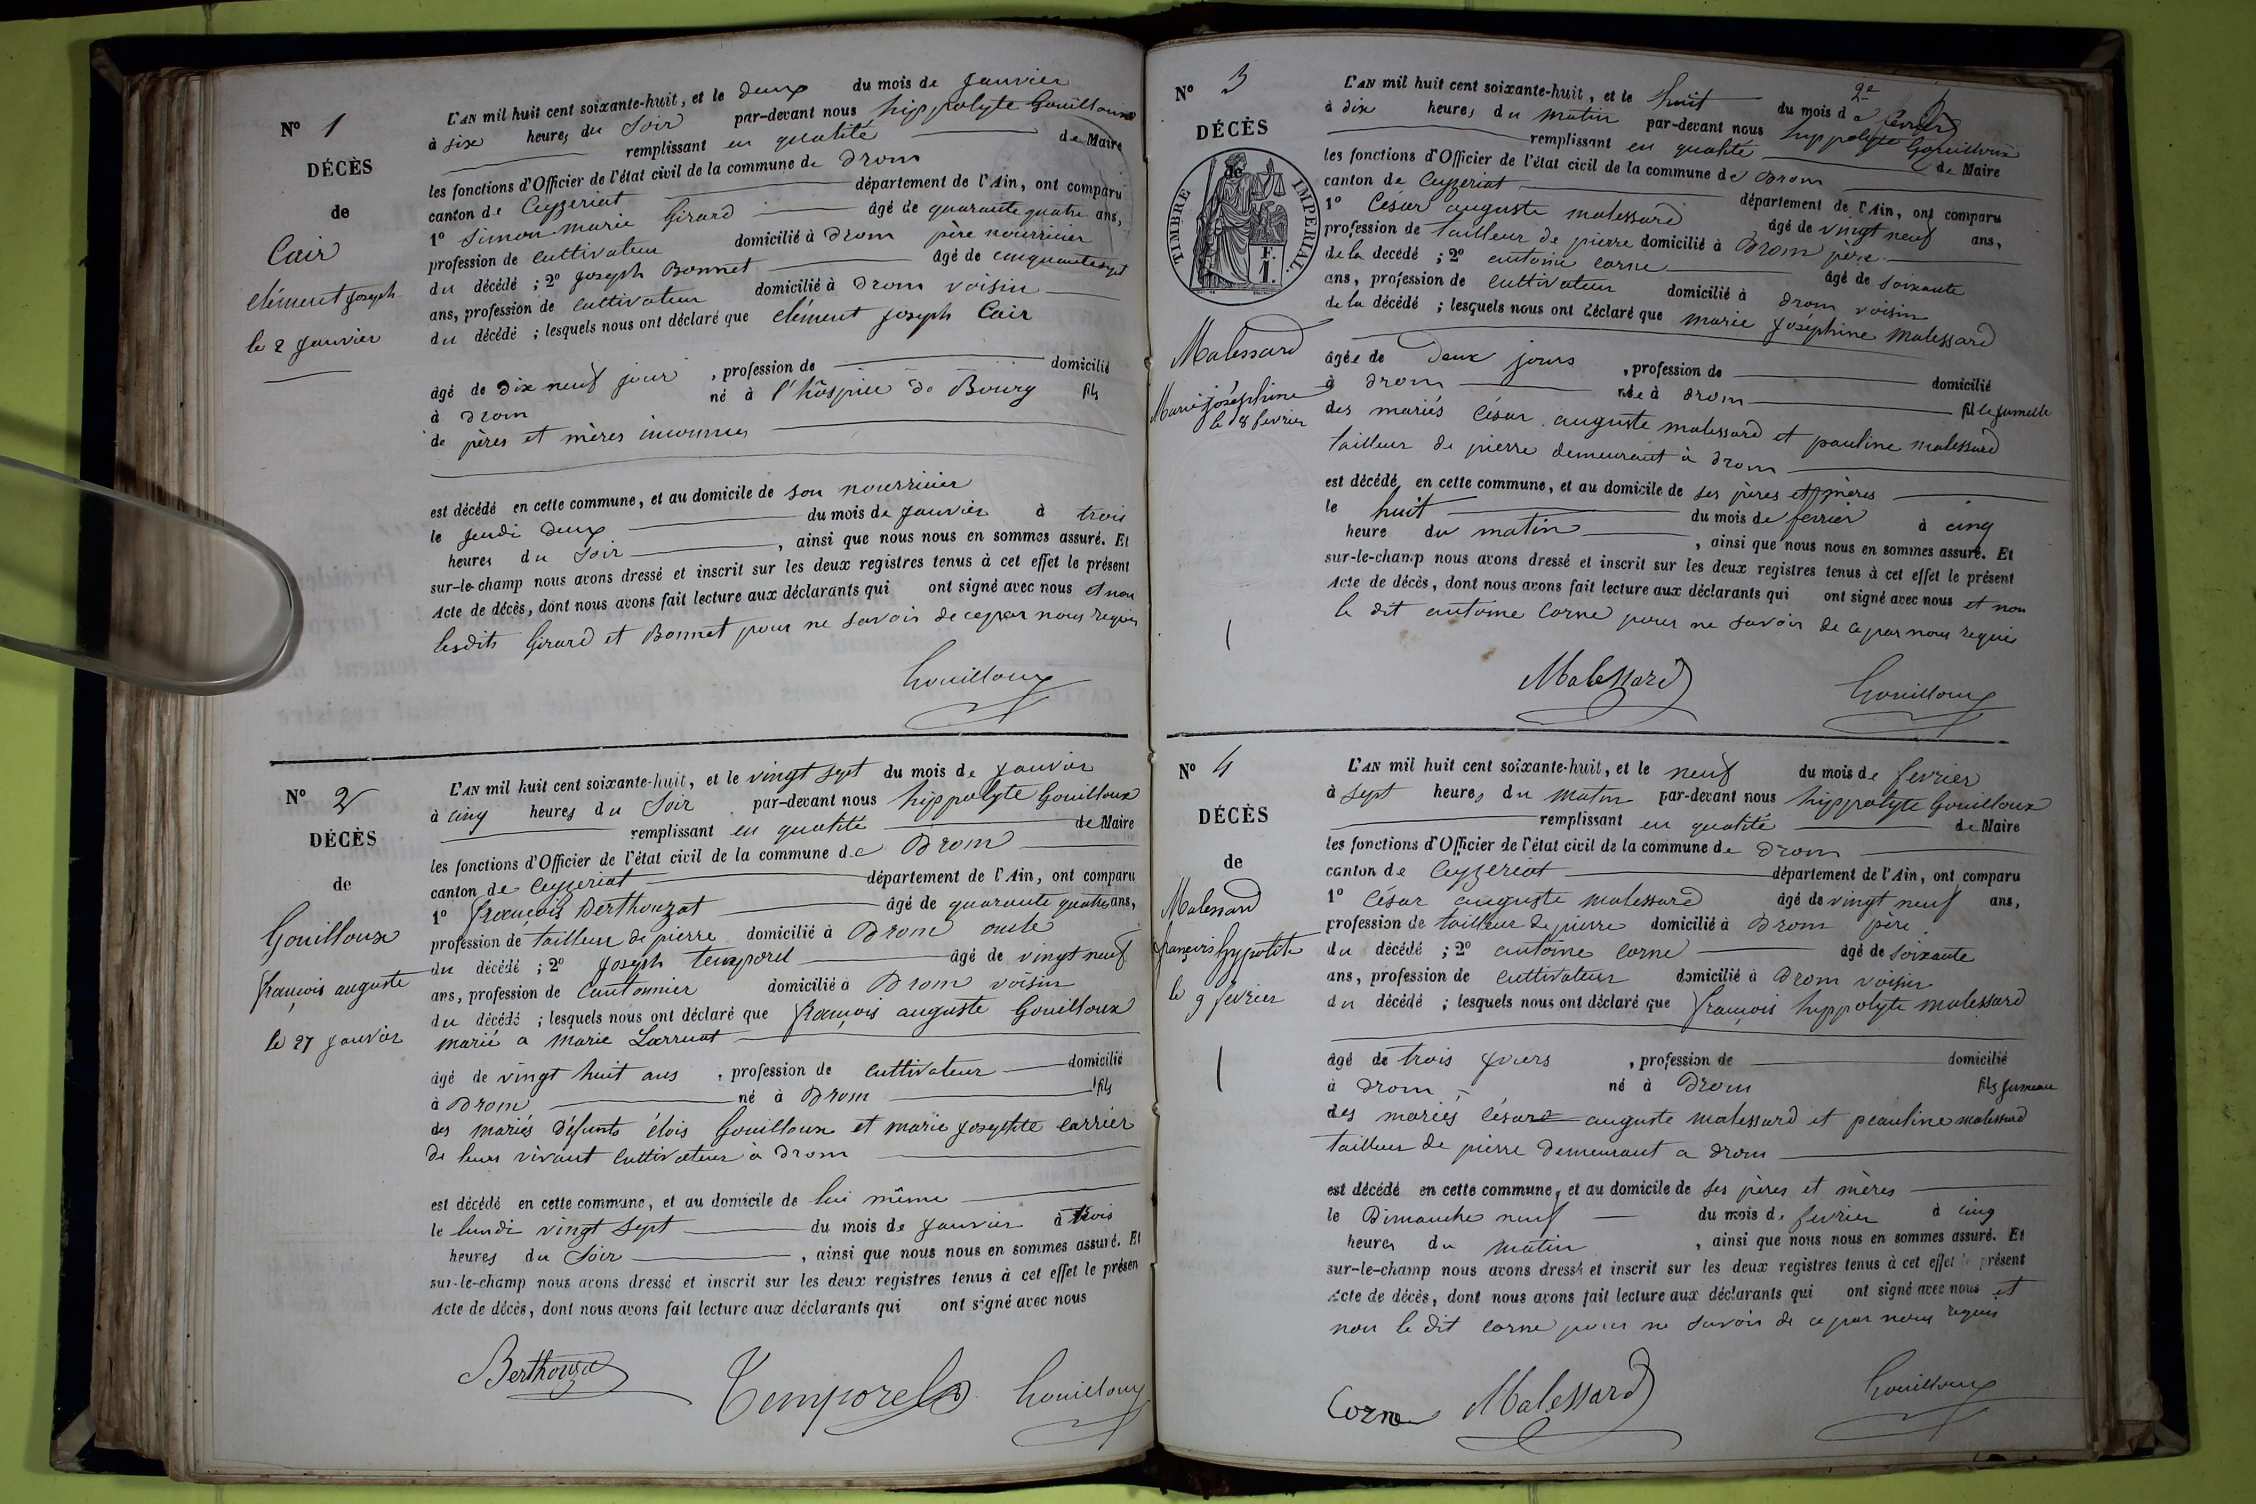 N° 1
DÉCÈS
de
Cair
clément joseph
le 2 janvier
L'AN mil huit cent soixante-huit, et le deux du mois de janvier
à six heures du soir par-devant nous hippolyte Gouilloux
remplissant en qualité de Maire
les fonctions d'Officier de l'état civil de la commune de Drom
canton de Ceyzeriat département de l'Ain, ont comparu
1° Simon marie Girard âgé de quarante quatre ans,
profession de cultivateur domicilié à Drom père nourricier
du décédé ; 2° Joseph Bonnet âgé de cinquante sept
ans, profession de cultivateur domicilié à Drom voisin
du décédé ; lesquels nous ont déclaré que clément joseph Cair
âgé de dix neuf jour , profession de domicilié
à Drom né à l'hôspice de Bourg fils
de pères et mères inconnus
est décédé en cette commune, et au domicile de son nourricier
le jeudi deux du mois de janvier à trois
heures du soir , ainsi que nous nous en sommes assuré. Et
sur-le-champ nous avons dressé et inscrit sur les deux registres tenus à cet effet le présent
Acte de décès, dont nous avons fait lecture aux déclarants qui ont signé avec nous et non
lesdits Girard et Bonnet pour ne savoir de ce par nous requis
Gouilloux
N° 2
DÉCÈS
de
Gouilloux
françois auguste
le 27 janvier
L'AN mil huit cent soixante-huit, et le vingt sept du mois de janvier
à cinq heures du soir par-devant nous hippolyte Gouilloux
remplissant en qualité de Maire
les fonctions d'Officier de l'état civil de la commune de Drom
canton de Ceyzeriat département de l'Ain, ont comparu
1° françois Berthouzat âgé de quarante quatre ans,
profession de tailleur de pierre domicilié à Drom oncle
du décédé ; 2° Joseph temporel âgé de vingt neuf
ans, profession de Cantonnier domicilié à Drom voisin
du décédé ; lesquels nous ont déclaré que françois auguste Gouilloux
marié a Marie
âgé de vingt huit ans , profession de cultivateur domicilié
à Drom né à Drom fils
des mariés défunts élois Gouilloux et marie josephte carrier
de leurs vivant cultivateur à Drom
est décédé en cette commune, et au domicile de lui même
le lundi vingt sept du mois de janvier à trois
heures du soir , ainsi que nous nous en sommes assuré. Et
sur-le-champ nous avons dressé et inscrit sur les deux registres tenus à cet effet le présen
Acte de décès, dont nous avons fait lecture aux déclarants qui ont signé avec nous
Temporel Gouilloux
N° 3
DÉCÈS
de
TIMBRE IMPERIAL.
F. 1.
Malessard
Marie joséphine
le 8 fevrier
L'AN mil huit cent soixante-huit, et le huit du mois de fevrier
à dix heures du matin par-devant nous hyppolyte Gouilloux
remplissant en qualité de Maire
les fonctions d'Officier de l'état civil de la commune de Drom
canton de Ceyzeriat département de l'Ain, ont comparu
1° César auguste malessard âgé de vingt neuf ans,
profession de tailleur de pierre domicilié à Drom père
de la decédé ; 2° antoine corne âgé de soixante
ans, profession de cultivateur domicilié à Drom voisin
de la décédé ; lesquels nous ont déclaré que marie joséphine malessard
âgée de deux jours , profession de domicilié
à Drom née à Drom fille jumelle
des mariés César auguste malessard et pauline malessard
tailleur de pierre demeurant à Drom
est décédé en cette commune, et au domicile de ses pères et mères
le huit du mois de fevrier à cinq
heure du matin , ainsi que nous nous en sommes assuré. Et
sur-le-champ nous avons dressé et inscrit sur les deux registres tenus à cet effet le présent
Acte de décès, dont nous avons fait lecture aux déclarants qui ont signé avec nous et non
le dit antoine Corne pour ne savoir de ce par nous requis
Malessard Gouilloux
N° 4
DÉCÈS
de
Malessard
françois hyppolite
le 9 février
L'AN mil huit cent soixante-huit, et le neuf du mois de fevrier
à sept heures du matin par-devant nous hyppolyte Gouilloux
remplissant en qualité de Maire
les fonctions d'Officier de l'état civil de la commune de Drom
canton de Ceyzeriat département de l'Ain, ont comparu
1° César auguste malessard âgé de vingt neuf ans,
profession de tailleur de pierre domicilié à Drom père
du décédé ; 2° antoine corne âgé de soixante
ans, profession de cultivateur domicilié à Drom voisin
du décédé ; lesquels nous ont déclaré que françois hyppolyte malessard
âgé de trois jours , profession de domicilié
à Drom né à Drom fils jumeau
des mariés césar auguste malessard et peauline malessard
tailleur de pierre demeurant a Drom
est décédé en cette commune, et au domicile de ses pères et mères
le Dimanche neuf du mois de fevrier à cinq
heures du matin , ainsi que nous nous en sommes assuré. Et
sur-le-champ nous avons dressé et inscrit sur les deux registres tenus à cet effet le présent
Acte de décès, dont nous avons fait lecture aux déclarants qui ont signé avec nous et
non le dit corne pour ne savoir de ce par nous requis
Corne Malessard Gouilloux